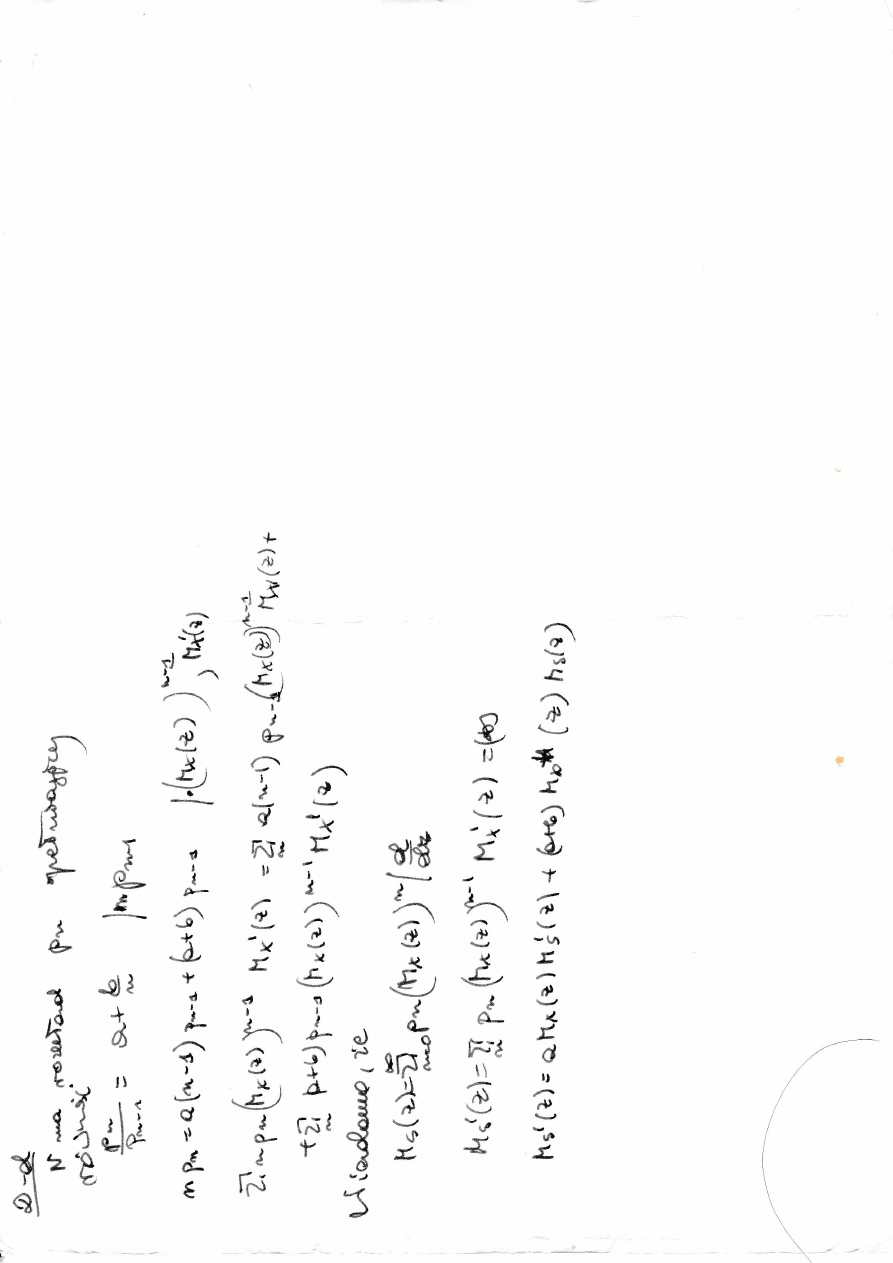 D-d
N ma rozkład pn spełniający
równość
pn/pn-1 = a + b/n |npn-1
npn = a(n-1)pn-1 + (a+b)pn-1 |·(MX(z))^n-1, MX'(z)
∑n npn(MX(z))^n-1 MX'(z) = ∑n a(n-1) pn-1(MX(z))^n-1 MX'(z)+
+∑n (a+b)pn-1(MX(z))^n-1 MX'(z)
Wiadomo, że
MS(z)=∑n=0^∞ pn(MX(z))^n | d/dz
MS'(z)=∑n pn(MX(z))^n-1 MX'(z) =
MS'(z)= aMX(z)MS'(z) + (a+b) MX'(z) MS(z)